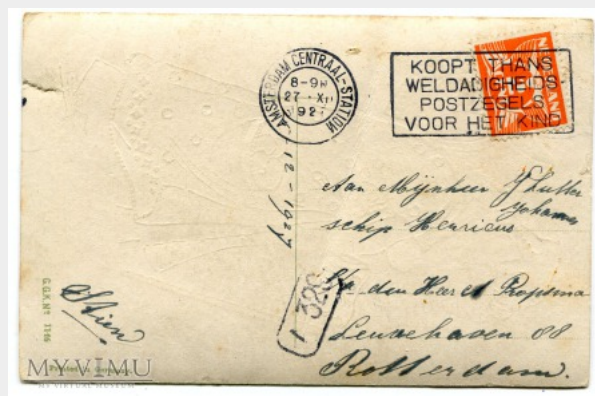 AMSTERDAM CENTRAAL-STATION
8-9
27 XII
192
KOOPT THANS
WELDADIGHEIDS
POSTZEGELS
VOOR HET KIND
NEDERLAND
12-1927
Aan Mijnheer J
Johannes
schip Henricus
p/a den Heer Propsma
Leuvehaven 88
Rotterdam.
1 326
Stien
G.G.K. Nº 1146
Printed in Germany
MYVIMU
MY VIRTUAL MUSEUM